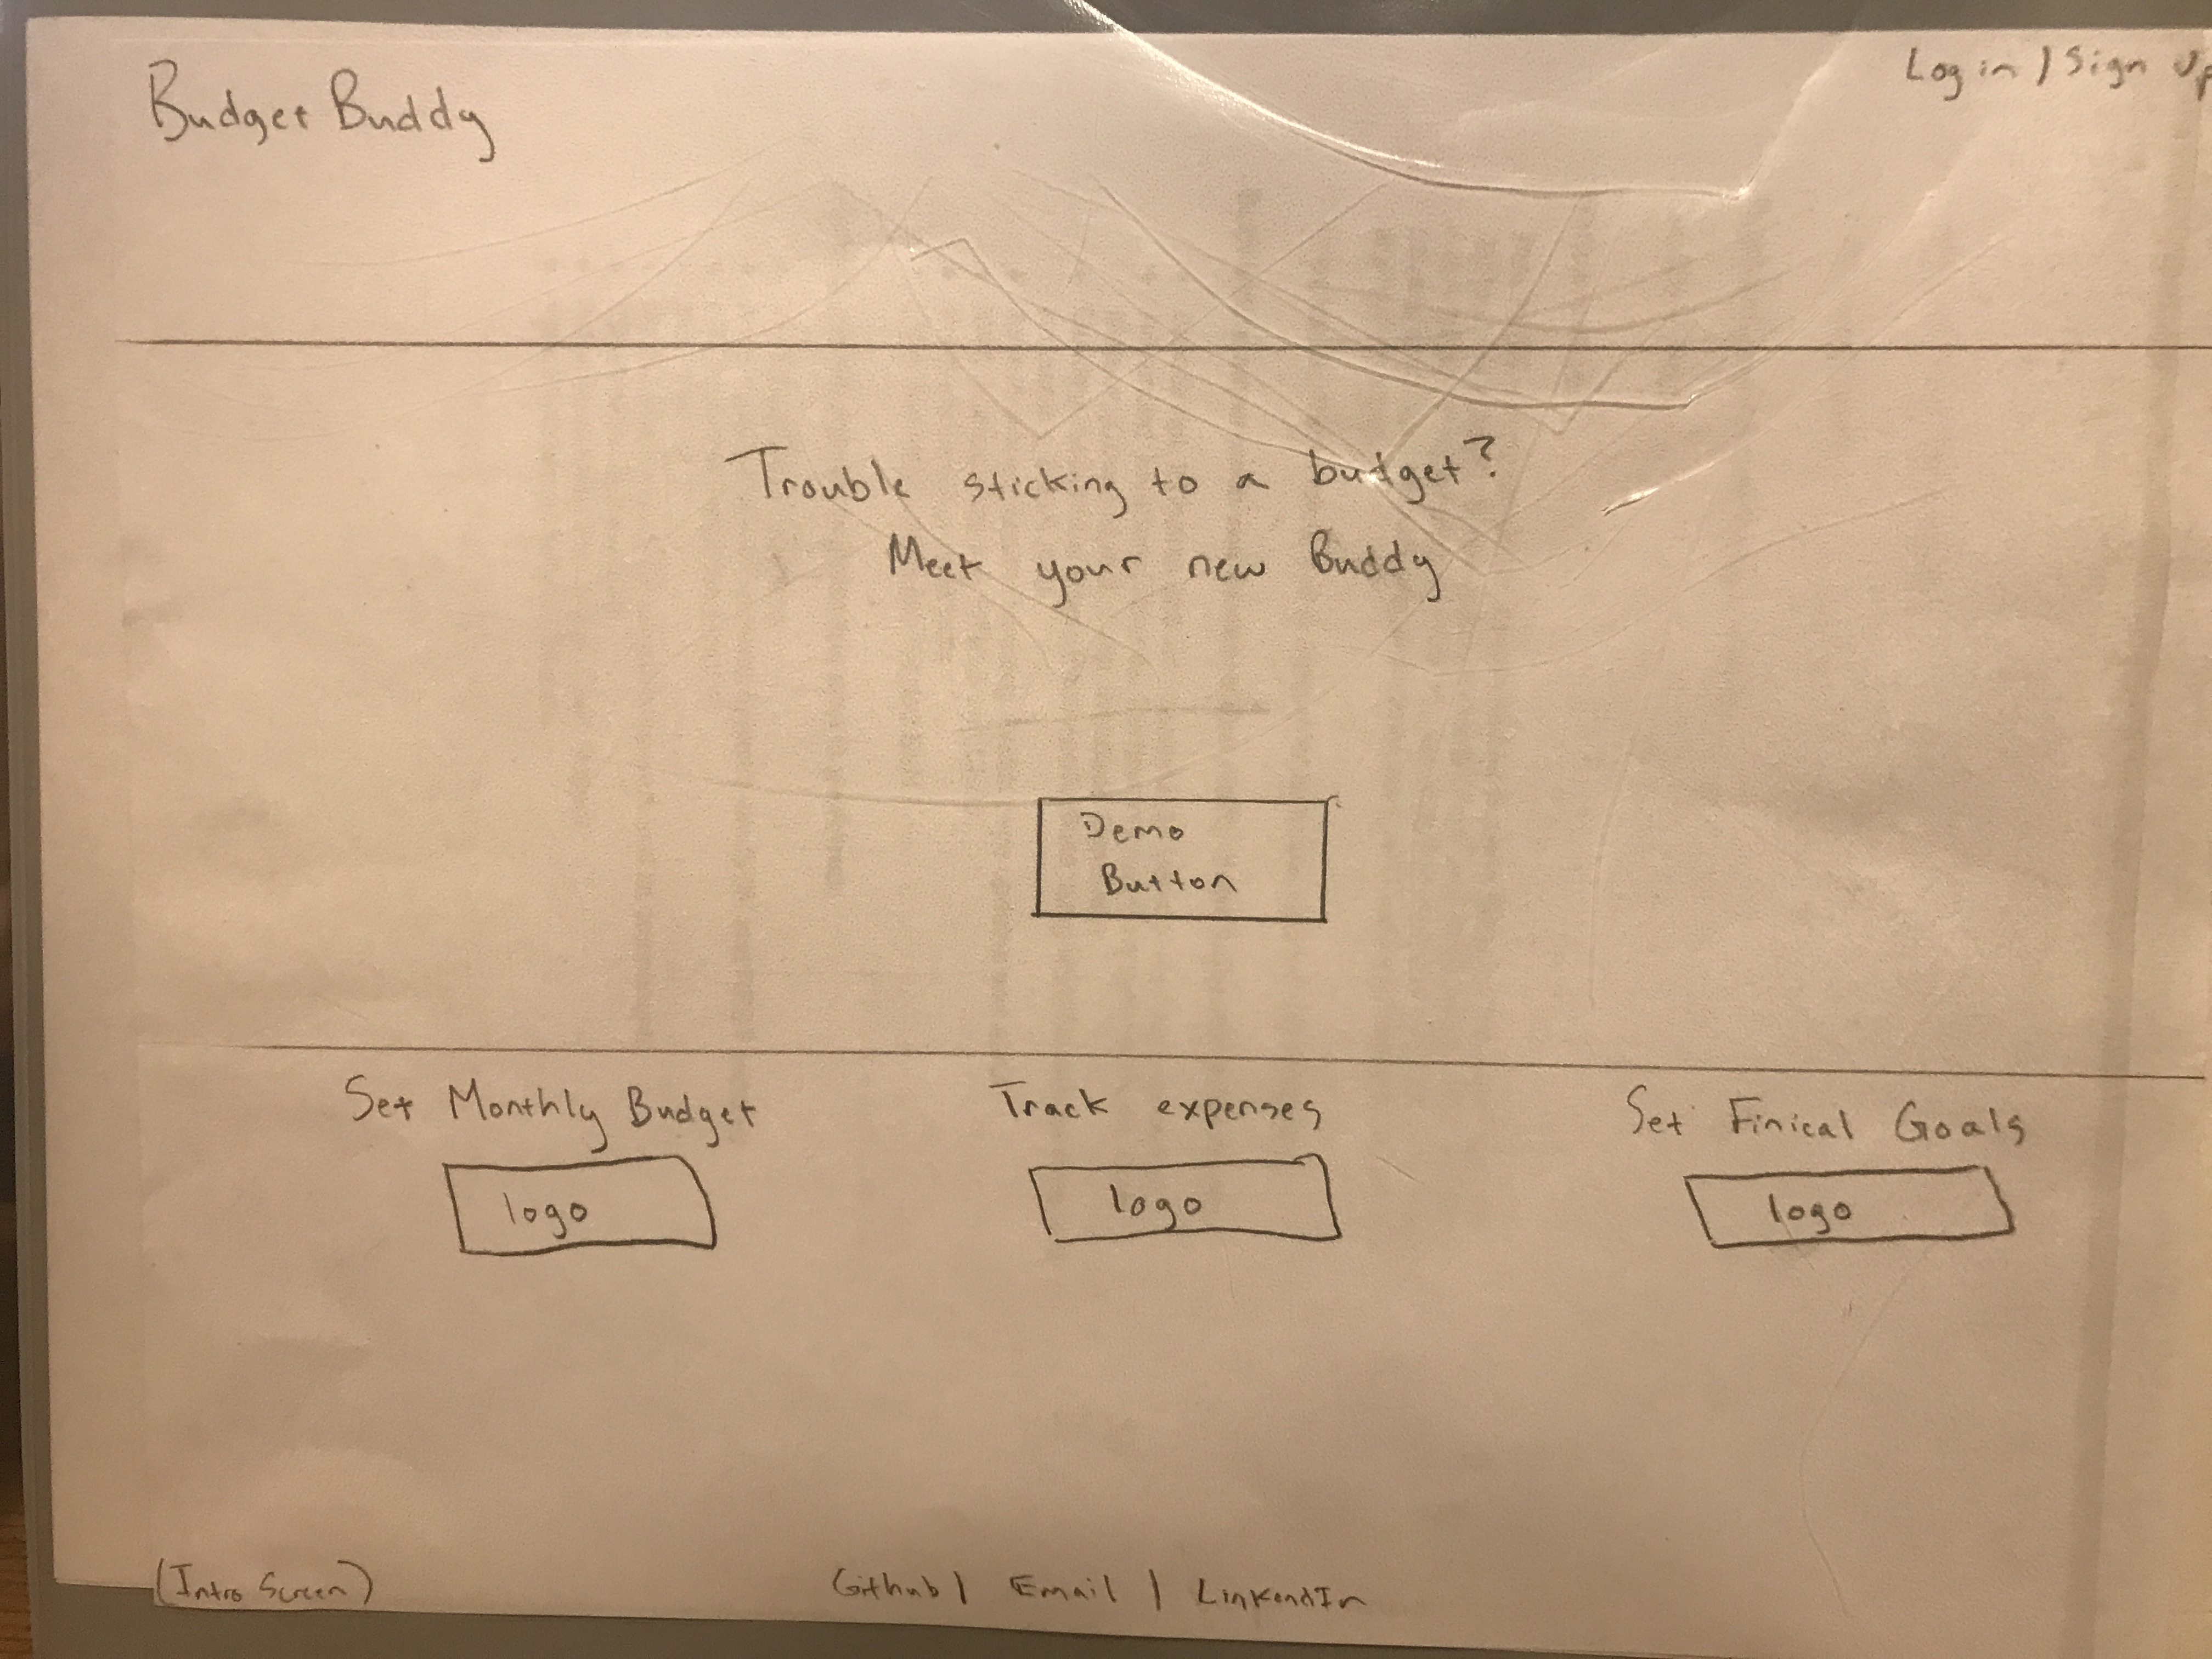 Budget Buddy
Log in / Sign Up
Trouble sticking to a budget?
Meet your new Buddy
Demo
Button
Set Monthly Budget
Track expenses
Set Finical Goals
logo
logo
logo
(Intro Screen)
Github | Email | LinkendIn